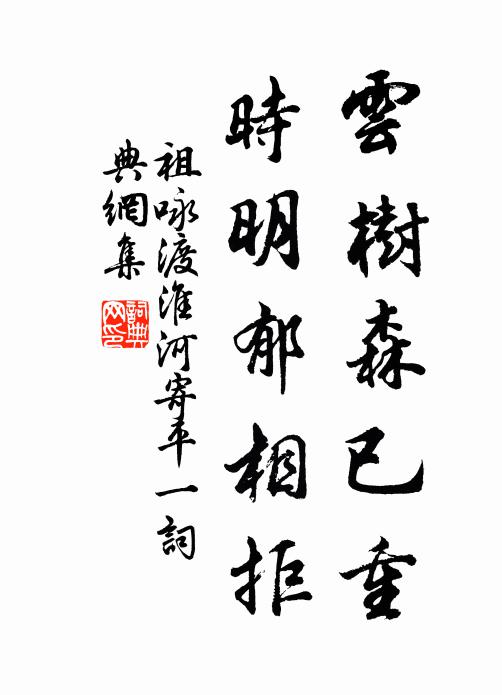 雲樹森已重
時明郁相拒
祖咏渡淮河寄平一詞
典網集
詞典網印